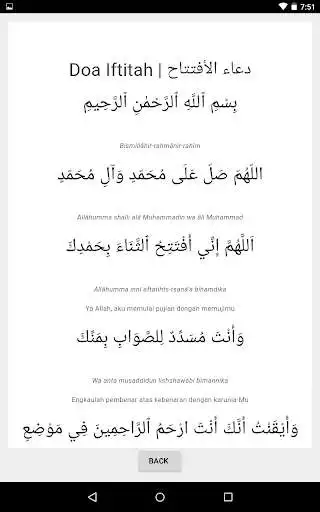 7:51
Doa Iftitah | دعاء الأفتتاح
بِسْمِ ٱللَّهِ ٱلرَّحْمٰنِ ٱلرَّحِيمِ
Bismillâhir-rahmânir-rahîm
اللّهُمَ صَلَ عَلَى مُحَمَدٍ وَآلِ مُحَمَدٍ
Allâhumma shalli alâ Muhammadin wa âli Muhammad
اَللَّهُمَّ إِنَّي أَفْتَتِحُ ٱلثَّنَاءَ بِحَمْدِكَ
Allâhumma innî aftatihts-tsanâ'a bihamdika
Ya Allah, aku memulai pujian dengan memujimu
وَأَنْتَ مُسَدِّدٌ لِلصَّوَابِ بِمَنِّكَ
Wa anta musaddidun lishshawâbi bimannika
Engkaulah pembenar atas kebenaran dengan karunia-Mu
وَأَيْقَنْتُ أَنَّكَ أَنْتَ ارْحَمُ ٱلرَّاحِمِينَ فِي مَوْضِعِ
BACK